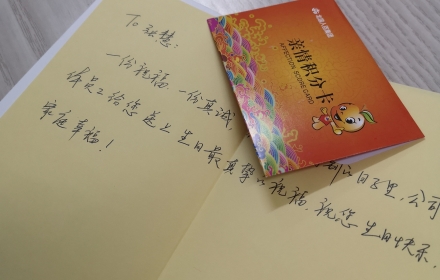 To 张慧：
一份祝福，一份真诚，
别的日子里，公司
体员工给您送上生日最真挚的祝福，祝您生日快乐，
家庭幸福！
亲情积分卡
AFFECTION SCORECARD